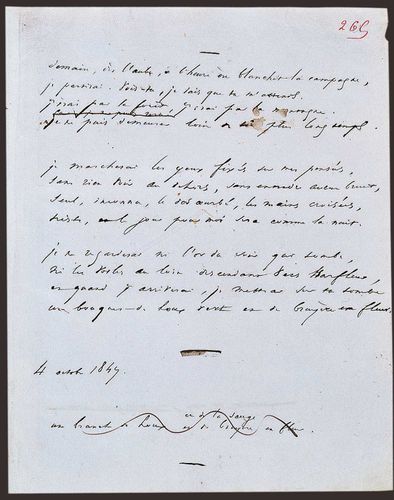 265
Demain, dès l'aube, à l'heure où blanchit la campagne,
je partirai. Vois-tu, je sais que tu m'attends.
j'irai par la forêt, j'irai par la montagne.
je ne puis demeurer loin de toi plus longtemps.
je marcherai les yeux fixés sur mes pensées,
sans rien voir au dehors, sans entendre aucun bruit,
seul, inconnu, le dos courbé, les mains croisées,
triste, et le jour pour moi sera comme la nuit.
je ne regarderai ni l'or du soir qui tombe,
ni les voiles au loin descendant vers Harfleur,
et quand j'arriverai, je mettrai sur ta tombe
un bouquet de houx vert et de bruyère en fleur.
4 octob 1847.
et de la sauge
un branche de houx et de bruyère en fleur